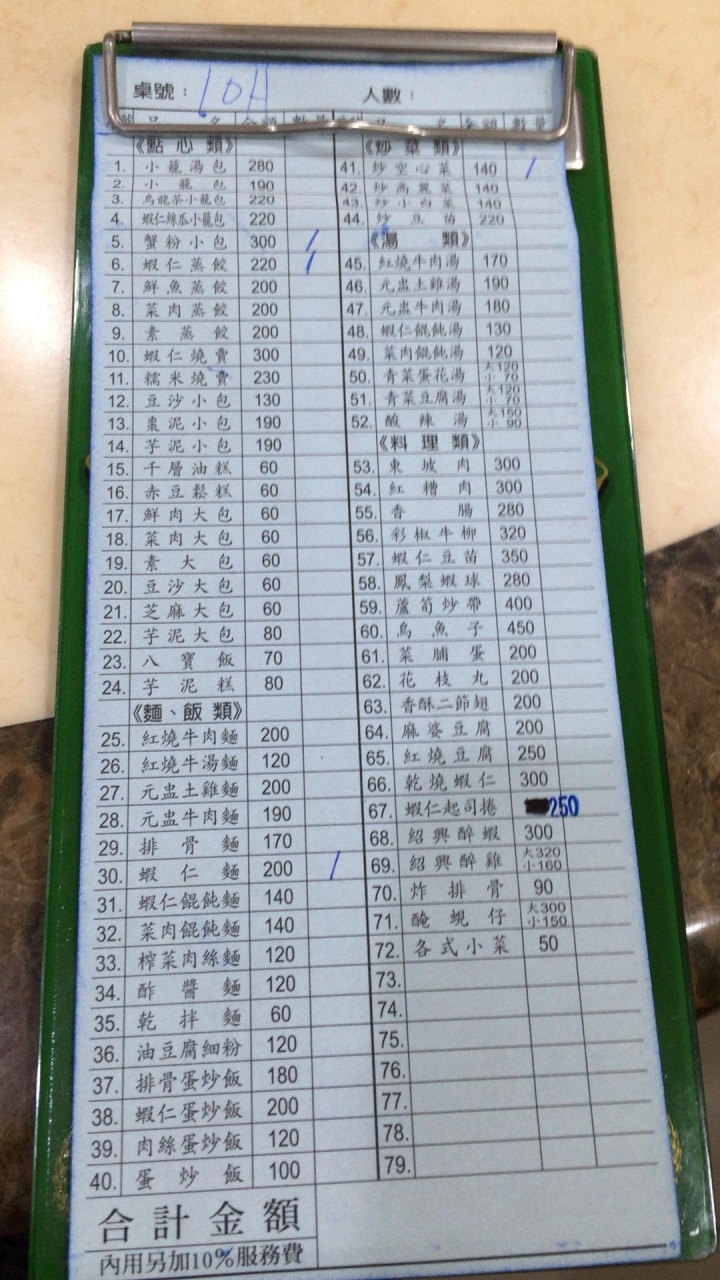 桌號： 10A 人數：
品 名 金額 數量 品 名 金額 數量
《點心類》
1. 小籠湯包 280
2. 小籠包 190
3. 烏龍茶小籠包 220
4. 蝦仁絲瓜小籠包 220
5. 蟹粉小包 300 /
6. 蝦仁蒸餃 220 /
7. 鮮魚蒸餃 200
8. 菜肉蒸餃 200
9. 素蒸餃 200
10. 蝦仁燒賣 300
11. 糯米燒賣 230
12. 豆沙小包 130
13. 棗泥小包 190
14. 芋泥小包 190
15. 千層油糕 60
16. 赤豆鬆糕 60
17. 鮮肉大包 60
18. 菜肉大包 60
19. 素大包 60
20. 豆沙大包 60
21. 芝麻大包 60
22. 芋泥大包 80
23. 八寶飯 70
24. 芋泥糕 80
《麵、飯類》
25. 紅燒牛肉麵 200
26. 紅燒牛湯麵 120
27. 元盅土雞麵 200
28. 元盅牛肉麵 190
29. 排骨麵 170
30. 蝦仁麵 200 /
31. 蝦仁餛飩麵 140
32. 菜肉餛飩麵 140
33. 榨菜肉絲麵 120
34. 酢醬麵 120
35. 乾拌麵 60
36. 油豆腐細粉 120
37. 排骨蛋炒飯 180
38. 蝦仁蛋炒飯 200
39. 肉絲蛋炒飯 120
40. 蛋炒飯 100
《炒菜類》
41. 炒空心菜 140 /
42. 炒高麗菜 140
43. 炒小白菜 140
44. 炒豆苗 220
《湯類》
45. 紅燒牛肉湯 170
46. 元盅土雞湯 190
47. 元盅牛肉湯 180
48. 蝦仁餛飩湯 130
49. 菜肉餛飩湯 120
50. 青菜蛋花湯 大120 小 70
51. 青菜豆腐湯 大120 小 70
52. 酸辣湯 大150 小 90
《料理類》
53. 東坡肉 300
54. 紅糟肉 300
55. 香腸 280
56. 彩椒牛柳 320
57. 蝦仁豆苗 350
58. 鳳梨蝦球 280
59. 蘆筍炒帶 400
60. 烏魚子 450
61. 菜脯蛋 200
62. 花枝丸 200
63. 香酥二節翅 200
64. 麻婆豆腐 200
65. 紅燒豆腐 250
66. 乾燒蝦仁 300
67. 蝦仁起司捲 250
68. 紹興醉蝦 300
69. 紹興醉雞 大320 小160
70. 炸排骨 90
71. 醃蜆仔 大300 小150
72. 各式小菜 50
73.
74.
75.
76.
77.
78.
79.
合計金額
內用另加10%服務費